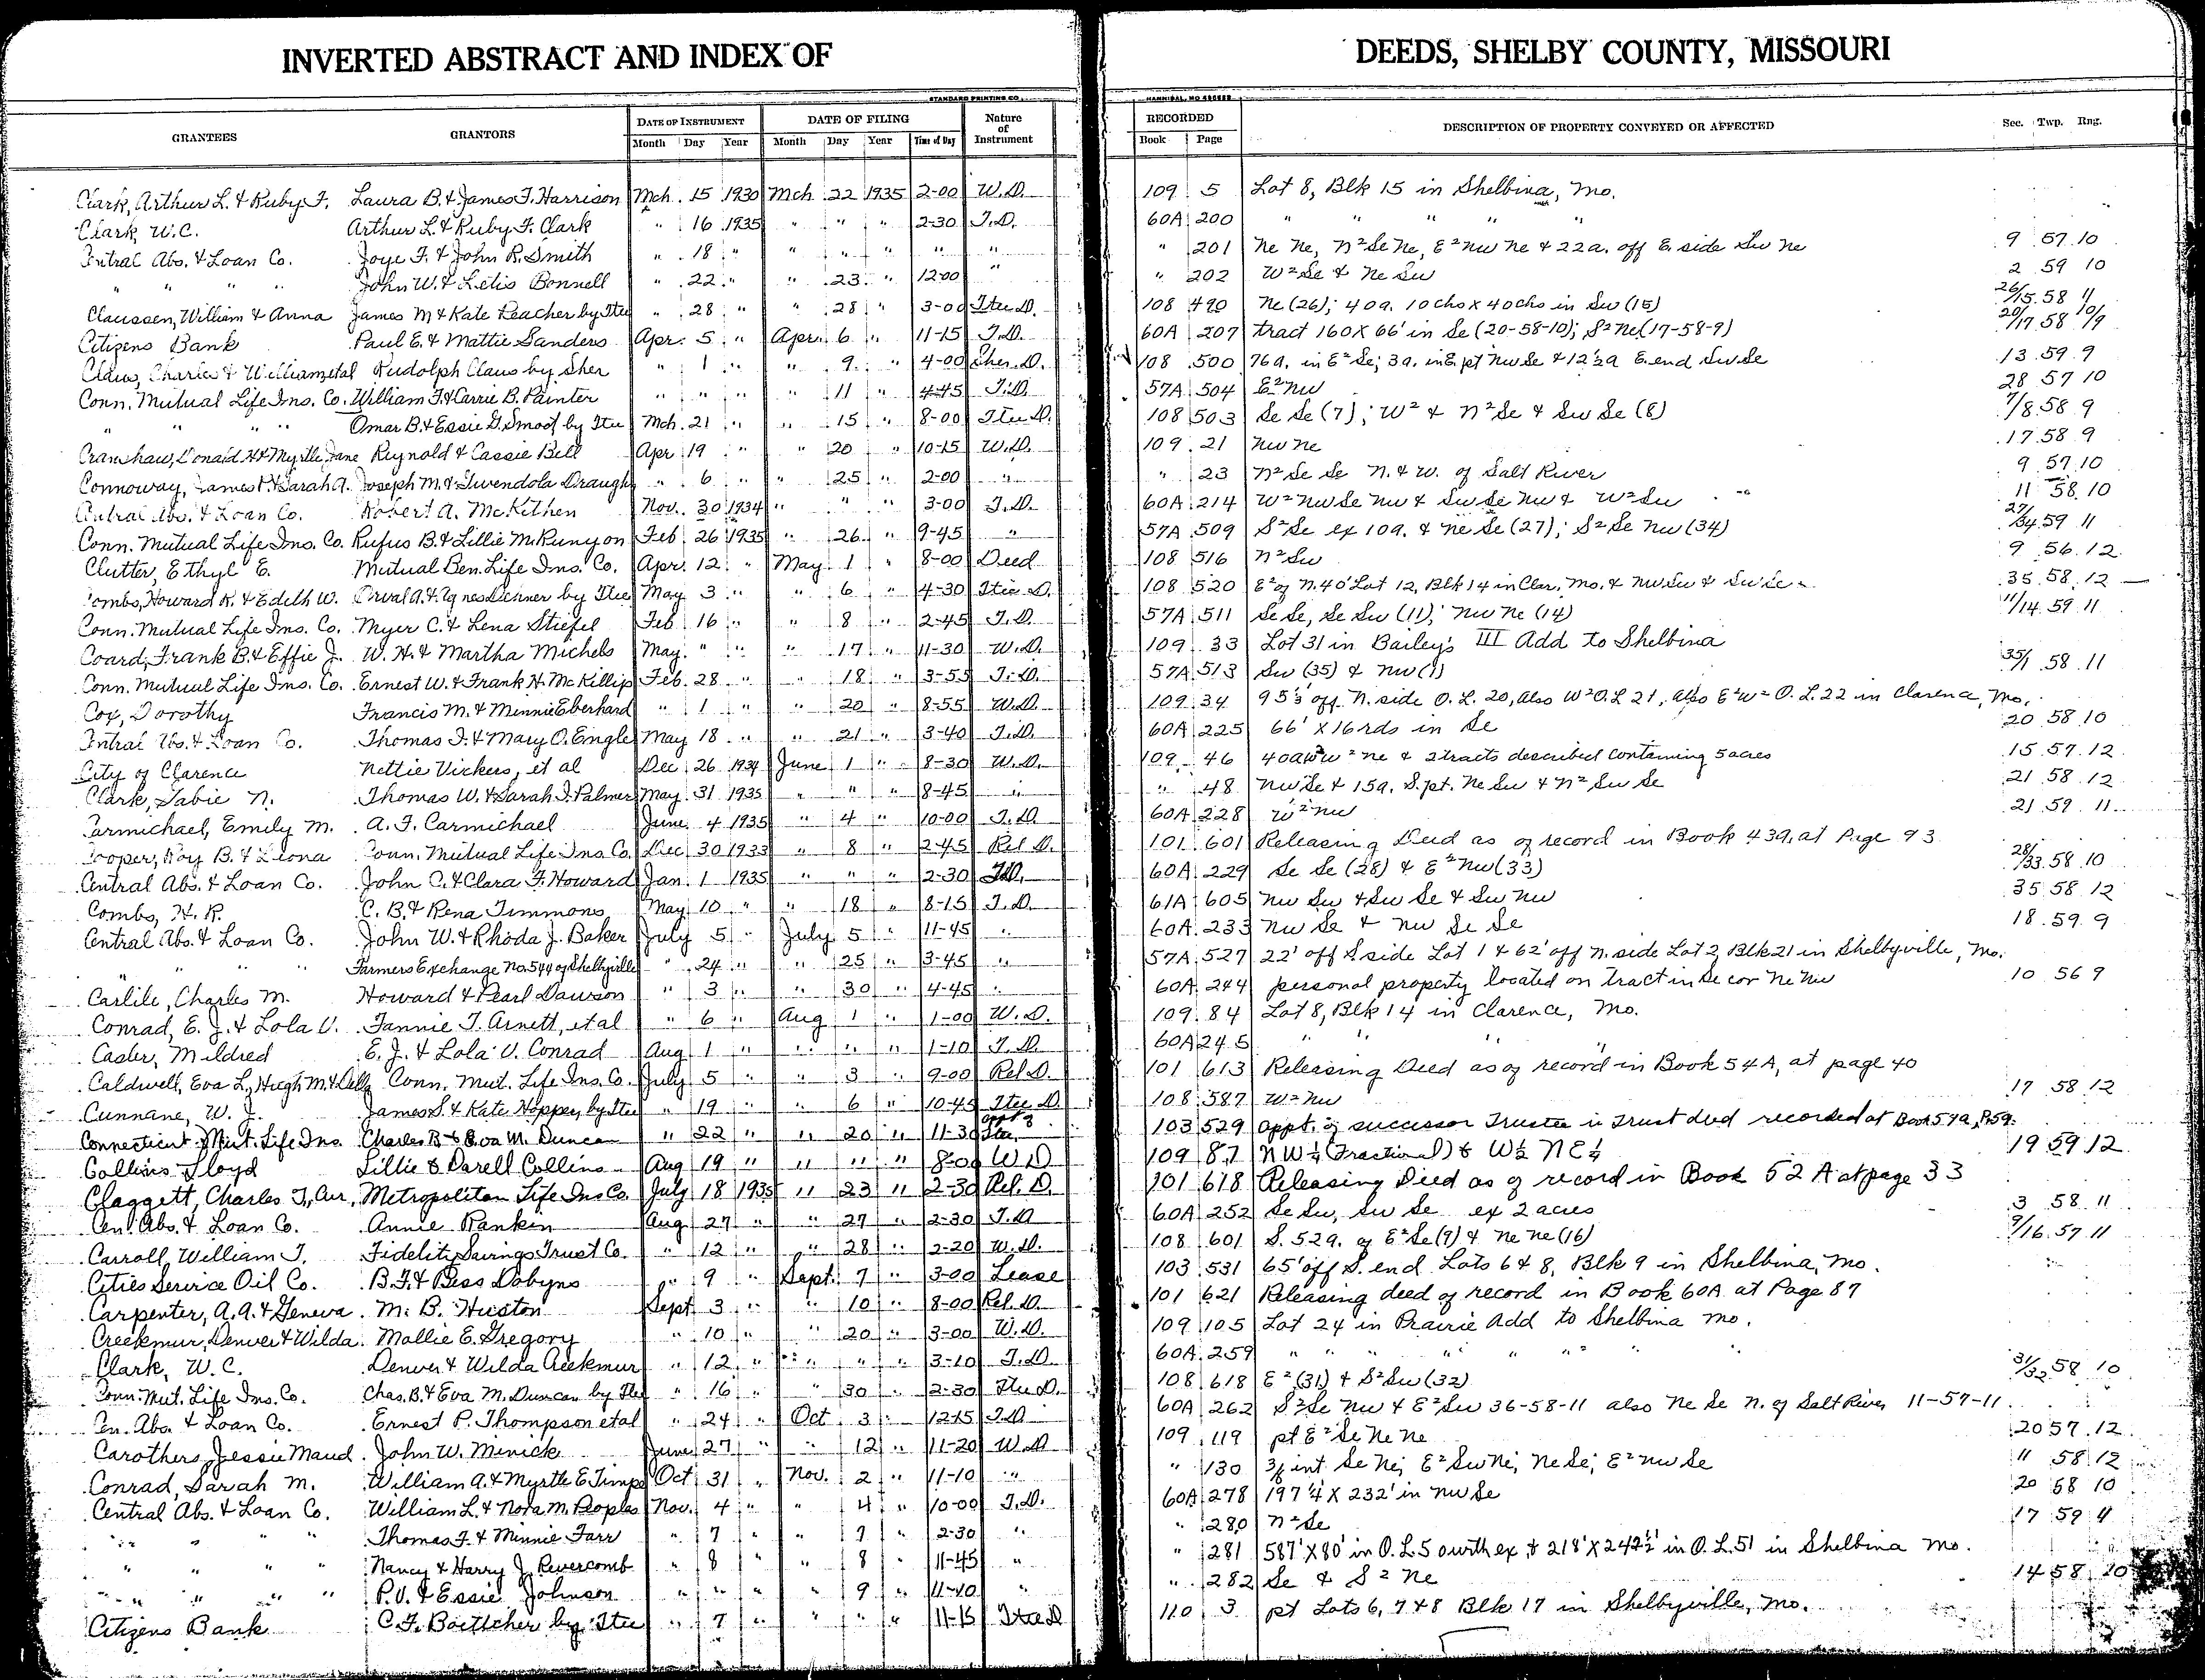 INVERTED ABSTRACT AND INDEX OF DEEDS, SHELBY COUNTY, MISSOURI
STANDARD PRINTING CO., HANNIBAL, MO
GRANTEES GRANTORS DATE OF INSTRUMENT DATE OF FILING Nature of Instrument RECORDED DESCRIPTION OF PROPERTY CONVEYED OR AFFECTED Sec. Twp. Rng.
Month Day Year Month Day Year Time of Day Book Page
Clark, Arthur L. & Ruby F. Laura B. & James F. Harrison Mch. 15 1930 Mch. 22 1935 2-00 W.D. 109 5 Lot 8, Blk 15 in Shelbina, Mo.
Clark, W.C. Arthur L. & Ruby F. Clark " 16 1935 " " " 2-30 T.D. 60A 200 " " " " "
Central Abs. & Loan Co. Joye F. & John R. Smith " 18 " " " " " " " 201 Ne Ne, N²Se Ne, E²Nw Ne & 22a. off E. side Sw Ne 9 57 10
" " " " John W. & Letis Bonnell " 22 " " 23 " 12-00 " " 202 W²Se & Ne Sw 2 59 10
Claussen, William & Anna James M & Kate Leacher by Tree " 28 " " 28 " 3-00 Tree D. 108 490 Ne (26); 40a. 10chs X 40chs in Sw (15) 26/15 58 11
Citizens Bank Paul E. & Mattie Sanders Apr. 5 " Apr. 6 " 11-15 T.D. 60A 207 tract 160 X 66' in Se (20-58-10); S²Ne (17-58-9) 20/17 58 10/9
Claus, Charles & William et al Rudolph Claus by Sher " 1 " " 9 " 4-00 Sher. D. 108 500 76a. in E²Se; 3a. in E. pt Nw Se & 12½a E. end Sw Se 13 59 9
Conn. Mutual Life Ins. Co. William F. & Carrie B. Painter " " " " 11 " 4-45 T.D. 57A 504 E²Nw 28 57 10
" " " " Omar B. & Essie G. Smoot by Tree Mch. 21 " " 15 " 8-00 Tree D. 108 503 Se Se (7); W² & N²Se & Sw Se (8) 7/8 58 9
Cranshaw, Donald H. & Myrtle Jane Reynold & Cassie Bell Apr 19 " " 20 " 10-15 W.D. 109 21 Nw Ne 17 58 9
Connoway, James P. & Sarah A. Joseph M. & Gwendola Draughn " 6 " " 25 " 2-00 " " 23 N²Se Se N. & W. of Salt River 9 57 10
Central Abs. & Loan Co. Robert A. McKithen Nov. 30 1934 " " " 3-00 T.D. 60A 214 W²Nw Se Nw & Sw Se Nw & W²Sw 11 58 10
Conn. Mutual Life Ins. Co. Rufus B. & Lillie M. Runyon Feb 26 1935 " 26 " 9-45 " 57A 509 S²Se ex 10a. & Ne Se (27); S²Se Nw (34) 27/34 59 11
Clutter, Ethyl E. Mutual Ben. Life Ins. Co. Apr. 12 " May 1 " 8-00 Deed 108 516 N²Sw 9 56 12
Combs, Howard R. & Edith W. Orval A. & Agnes Dehner by Tree May 3 " " 6 " 4-30 Tree D. 108 520 E² of N. 40' Lot 12, Blk 14 in Clar. Mo. & Nw Sw & Sw Se 35 58 12
Conn. Mutual Life Ins. Co. Myer C. & Lena Stiefel Feb 16 " " 8 " 2-45 T.D. 57A 511 Se Se, Se Sw (11); Nw Ne (14) 11/14 59 11
Coard, Frank B. & Effie J. W. H. & Martha Michels May " " " 17 " 11-30 W.D. 109 33 Lot 31 in Bailey's III Add to Shelbina
Conn. Mutual Life Ins. Co. Ernest W. & Frank H. McKillip Feb. 28 " " 18 " 3-55 T.D. 57A 513 Sw (35) & Nw (1) 35/1 58 11
Cox, Dorothy Francis M. & Minnie Eberhard " 1 " " 20 " 8-55 W.D. 109 34 95⅓' off N. side O.L. 20, also W²O.L 21, also E²W² O.L. 22 in Clarence, Mo.
Central Abs. & Loan Co. Thomas J. & Mary O. Engle May 18 " " 21 " 3-40 T.D. 60A 225 66' X 16rds in Se 20 58 10
City of Clarence Nettie Vickers, et al Dec 26 1934 June 1 " 8-30 W.D. 109 46 40a W² Ne & 2 tracts described containing 5 acres 15 57 12
Clark, Sabie N. Thomas W. & Sarah J. Palmer May 31 1935 " " " 8-45 " " 48 Nw Se & 15a. S. pt. Ne Sw & N² Sw Se 21 58 12
Carmichael, Emily M. A. F. Carmichael June 4 1935 " 4 " 10-00 T.D. 60A 228 W²Nw 21 59 11
Cooper, Roy B. & Leona Conn. Mutual Life Ins Co. Dec 30 1933 " 8 " 2-45 Rel D. 101 601 Releasing Deed as of record in Book 439, at Page 93
Central Abs. & Loan Co. John C. & Clara F. Howard Jan. 1 1935 " " " 2-30 T.D. 60A 229 Se Se (28) & E²Nw (33) 28/33 58 10
Combs, H. R. C. B. & Rena Timmons May 10 " " 18 " 8-15 T.D. 61A 605 Nw Sw & Sw Se & Sw Nw 35 58 12
Central Abs. & Loan Co. John W. & Rhoda J. Baker July 5 " July 5 " 11-45 " 60A 233 Nw Se & Nw Se Se 18 59 9
" " " " Farmers Exchange No. 544 of Shelbyville " 24 " " 25 " 3-45 " 57A 527 22' off S. side Lot 1 & 62' off N. side Lot 2, Blk 21 in Shelbyville, Mo.
Carlile, Charles M. Howard & Pearl Dawson " 3 " " 30 " 4-45 " 60A 244 personal property located on tract in Se cor Ne Nw 10 56 9
Conrad, E. J. & Lola V. Fannie T. Arnett, et al " 6 " Aug 1 " 1-00 W.D. 109 84 Lot 8, Blk 14 in Clarence, Mo.
Casler, Mildred E. J. & Lola V. Conrad Aug 1 " " " " 1-10 T.D. 60A 245 " " "
Caldwell, Eva L, Hugh M. & Della Conn. Mut. Life Ins. Co. July 5 " " 3 " 9-00 Rel D. 101 613 Releasing Deed as of record in Book 54A, at page 40
Cunnane, W. J. James S. & Kate Hoppey, by Tree " 19 " " 6 " 10-45 Tree D. 108 587 W²Nw 17 58 12
Connecticut Mut. Life Ins. Charles B. & Eva M. Duncan " 22 " " 20 " 11-30 appt Tree 103 529 appt. of successor Trustee in Trust deed recorded at Book 57a, P.59.
Collins Floyd Lillie & Darell Collins Aug 19 " " " " 8-00 W D 109 87 NW¼ (Fractional) & W½ NE¼ 19 59 12
Claggett, Charles T, Metropolitan Life Ins Co. July 18 1935 " 23 " 2-30 Rel. D. 101 618 Releasing Deed as of record in Book 52 A at page 33
Cen. Abs. & Loan Co. Annie Rankin Aug 27 " " 27 " 2-30 T.D 60A 252 Se Sw, Sw Se ex 2 acres 3 58 11
Carroll, William T. Fidelity Savings Trust Co. " 12 " " 28 " 2-20 W.D. 108 601 S. 52a. of E²Se (9) & Ne Ne (16) 9/16 57 11
Cities Service Oil Co. B. F. & Bess Dobyns " 9 " Sept. 7 " 3-00 Lease 103 531 65' off S. end Lots 6 & 8, Blk 9 in Shelbina, Mo.
Carpenter, A. A. & Geneva M. B. Huston Sept 3 " " 10 " 8-00 Rel. D. 101 621 Releasing deed of record in Book 60A at Page 87
Creekmur, Denver & Wilda Mollie E. Gregory " 10 " " 20 " 3-00 W.D. 109 105 Lot 24 in Prairie Add to Shelbina Mo.
Clark, W. C. Denver & Wilda Creekmur " 12 " " " " 3-10 T.D. 60A 259 " " " " " "
Conn. Mut. Life Ins. Co. Chas. B. & Eva M. Duncan by Tree " 16 " " 30 " 2-30 Tree D. 108 618 E² (31) & S²Sw (32) 31/32 58 10
Cen. Abs. & Loan Co. Ernest P. Thompson et al " 24 " Oct 3 " 12-15 T.D 60A 262 S²Se Nw & E²Sw 36-58-11 also Ne Se N. of Salt River 11-57-11
Carothers, Jessie Maud John W. Minick June 27 " " 12 " 11-20 W.D 109 119 pt E²Se Ne Ne 20 57 12
Conrad, Sarah M. William A. & Myrtle E. Timpe Oct 31 " Nov. 2 " 11-10 " " 130 int Se Ne; E²Sw Ne; Ne Se; E²Nw Se 11 58 12
Central Abs. & Loan Co. William L. & Nora M. Peoples Nov. 4 " " 4 " 10-00 T.D. 60A 278 197¼ X 232' in Nw Se 20 58 10
" " " Thomas F. & Minnie Farr " 7 " " 7 " 2-30 " " 280 N²Se 17 59 11
" " " Nancy & Harry J. Revercomb " 8 " " 8 " 11-45 " " 281 587' X 80' in O.L. 5 ex & 218' X 242½' in O.L. 51 in Shelbina Mo.
" " " " P. V. & Essie Johnson " " " " 9 " 11-40 " " 282 Se & S² Ne 14 58 10
Citizens Bank C. F. Boettcher by Tree " 7 " " " " 11-15 Tree D 110 3 pt Lots 6, 7 & 8 Blk 17 in Shelbyville, Mo.